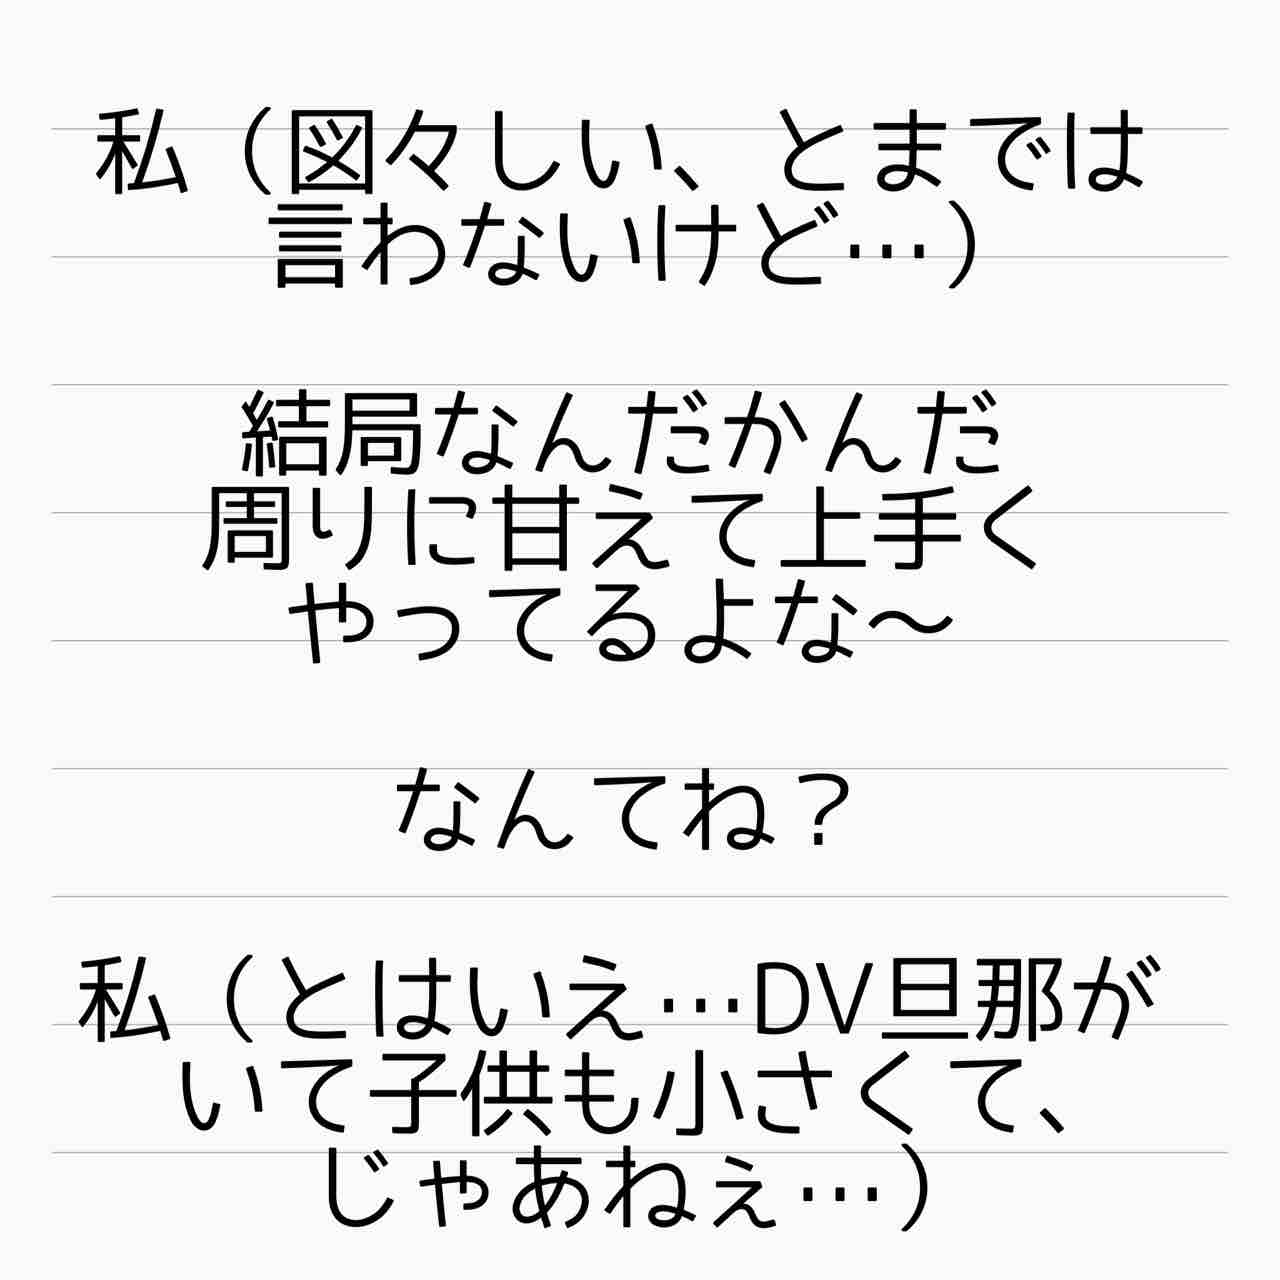 私（図々しい、とまでは
言わないけど…）
結局なんだかんだ
周りに甘えて上手く
やってるよな〜
なんてね？
私（とはいえ…DV旦那が
いて子供も小さくて、
じゃあねぇ…）